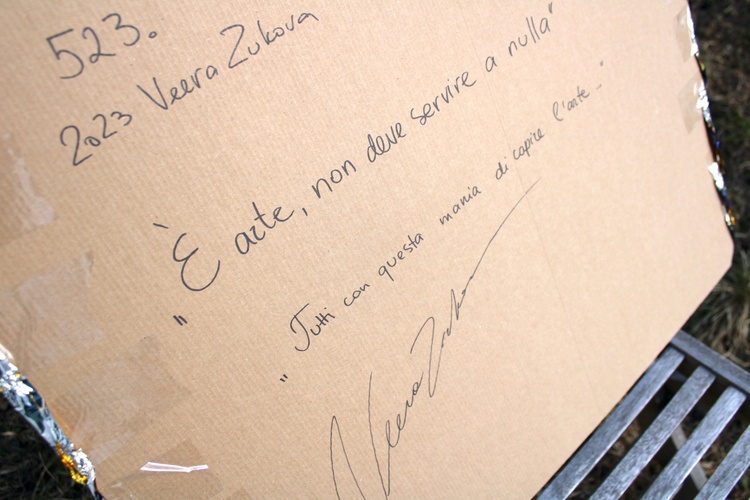 523.
2023 Veera Zukova
"È arte, non deve servire a nulla"
"Tutti con questa mania di capire l'arte.."
Veera Zukova